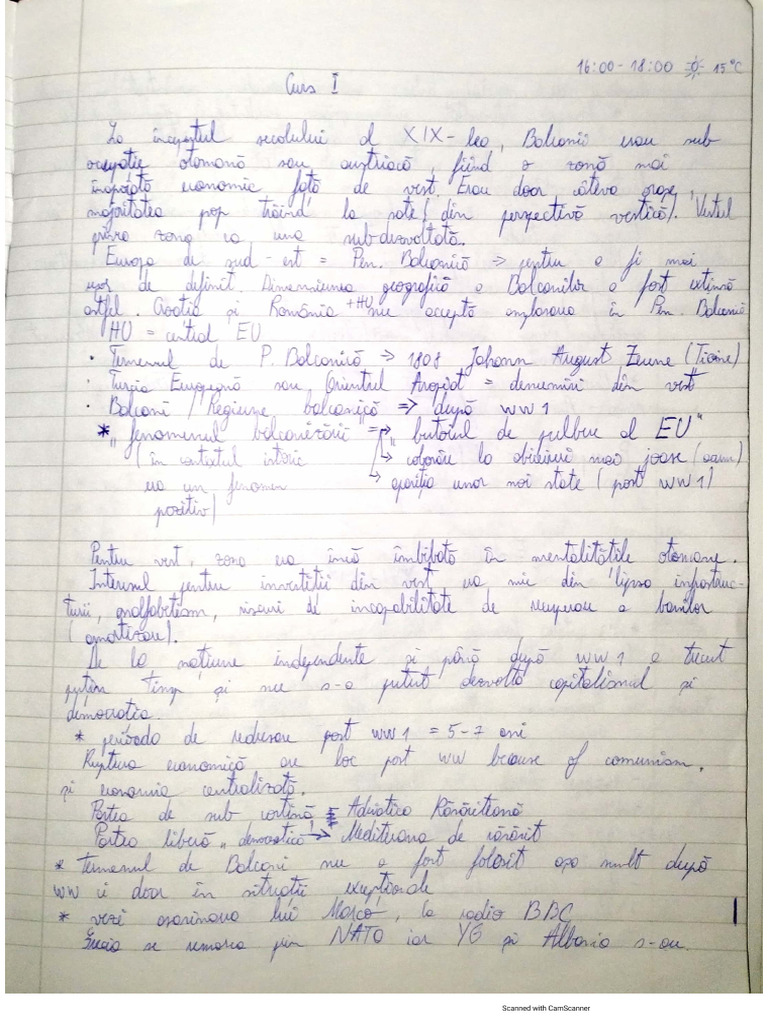 16:00-18:00 15°C
Curs I
La începutul secolului al XIX-lea, Balcanii erau sub
ocupație otomană sau austriacă, fiind o zonă mai
înapoiată economic față de vest. Erau doar câteva orașe,
majoritatea pop trăind la sate (din perspectivă vestică). Vestul
privea zona ca una subdezvoltată.
Europa de sud-est = Pen. Balcanică → pentru a fi mai
ușor de definit. Dimensiunea geografică a Balcanilor a fost extinsă
astfel. Croația și România +HU nu acceptă includerea în Pen. Balcanică
HU = central EU
• Termenul de P. Balcanică => 1808 Johann August Zeune
• Turcia Europeană sau Orientul Apropiat = denumiri din vest
• Balcani / Regiune balcanică => după WW1
* „fenomenul balcanizării" => „butoiul de pulbere al EU"
(în contextul istoric → coborâre la obiceiuri mai joase
era un fenomen → apariția unor noi state (post WW1)
pozitiv)
Pentru vest, zona era încă îmbibată în mentalitățile otomane.
Interesul pentru investiții din vest era mic din lipsa infrastruc-
turii, analfabetism, riscuri de incapabilitate de recuperare a banilor
(amortizare).
De la națiune independente și până după WW1 a trecut
puțin timp și nu s-a putut dezvolta capitalismul și
democrația.
* perioada de redresare post WW1 = 5-7 ani
Ruptura economică are loc post WW because of comunism,
și economia centralizată.
Partea de sub cortină = Adriatica Răsăriteană
Partea liberă, democratică → Mediterana de răsărit
* termenul de Balcani nu a fost folosit așa mult după
WW ci doar în situații excepționale
* vezi asasinarea lui Marco, la radio BBC
Grecia se remarca prin NATO iar YG și Albania s-au
Scanned with CamScanner